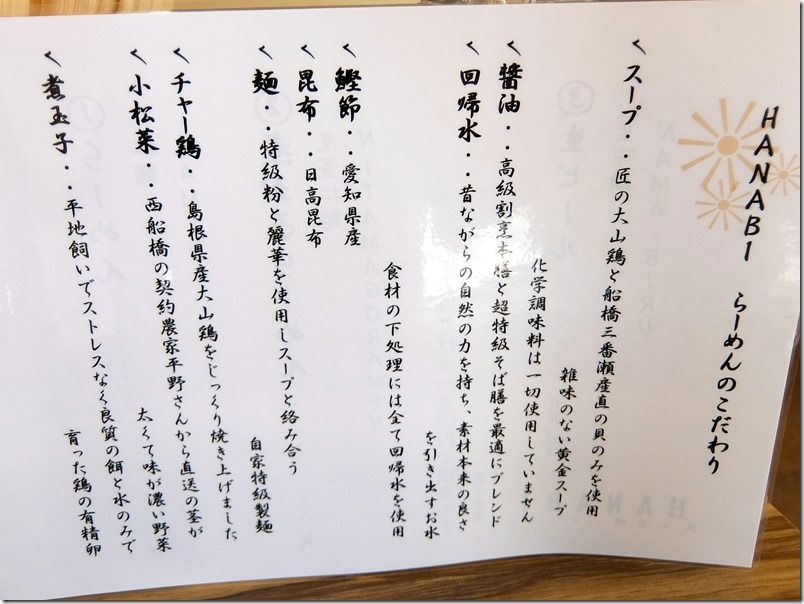 HANABI らーめんのこだわり
く スープ・・匠の大山鶏と船橋三番瀬産直の貝のみを使用
雑味のない黄金スープ
化学調味料は一切使用していません
く 醤油・・高級割烹本膳と超特級そば膳を最適にブレンド
く 回帰水・・昔ながらの自然の力を持ち、素材本来の良さ
を引き出すお水
食材の下処理には全て回帰水を使用
く 鰹節・・愛知県産
く 昆布・・日高昆布
く 麺・・特級粉と麗華を使用しスープと絡み合う
自家特級製麺
く チャー鶏・・島根県産大山鶏をじっくり焼き上げました
く 小松菜・・西船橋の契約農家平野さんから直送の茎が
太くて味が濃い野菜
く 煮玉子・・平地飼いでストレスなく良質の餌と水のみで
育った鶏の有精卵